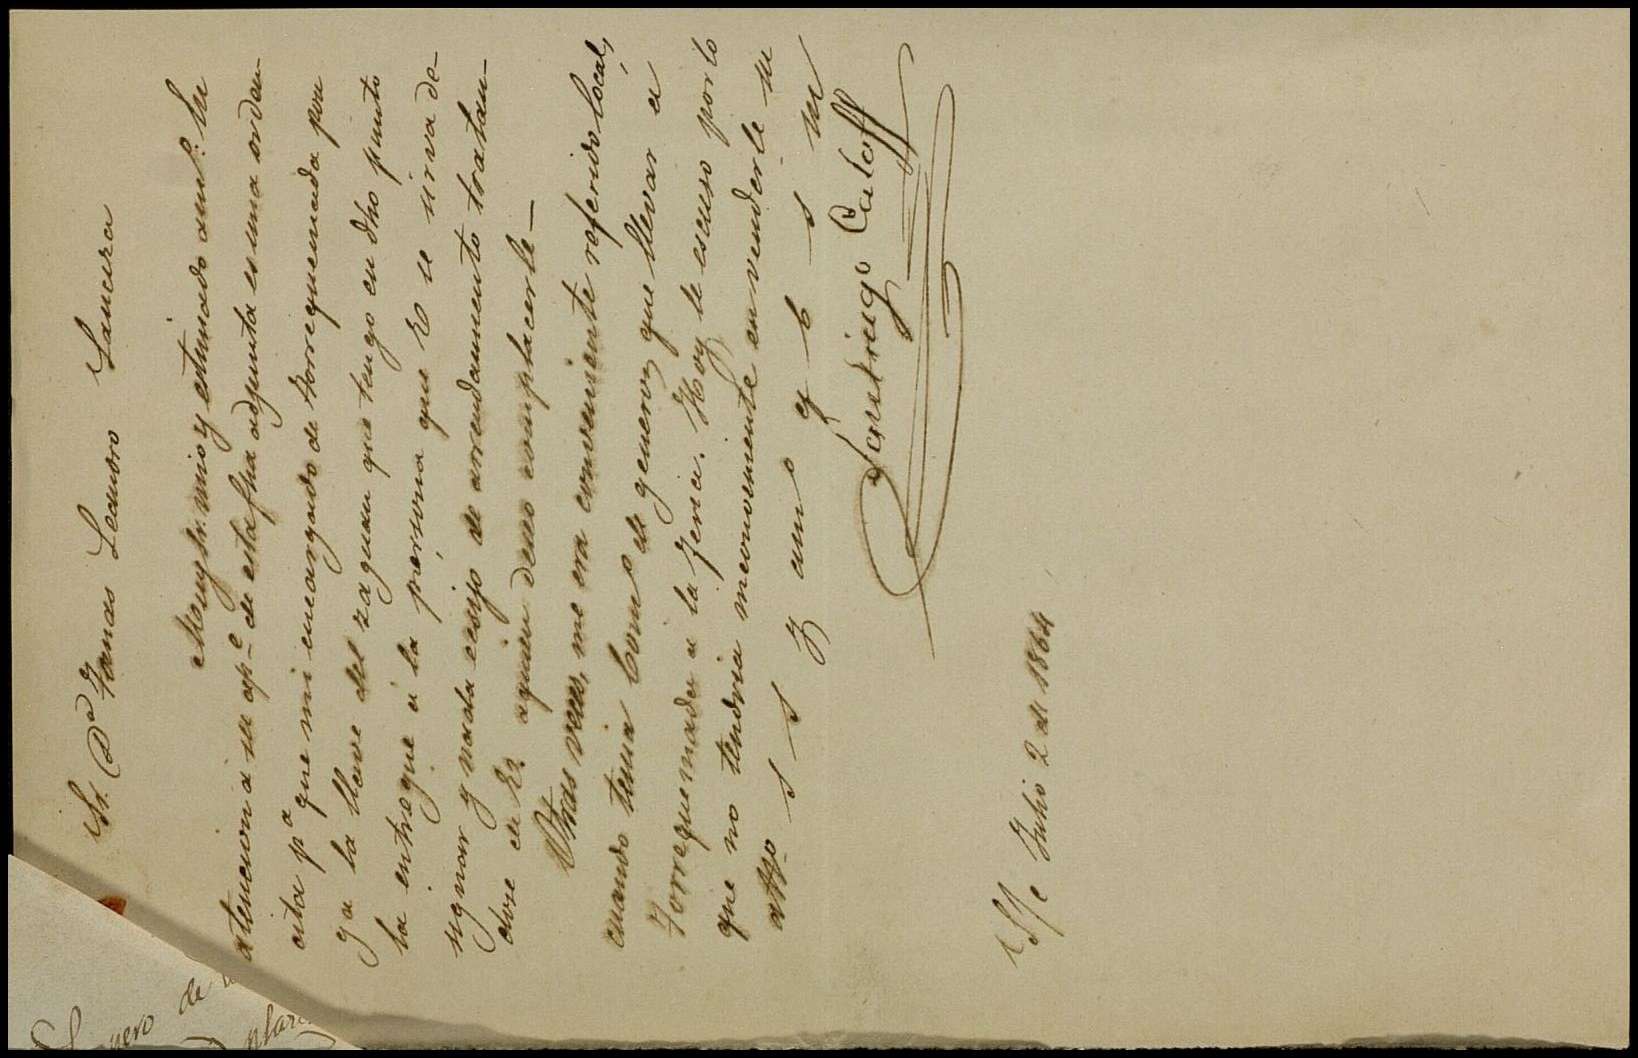 Sr. Dn Tomas Leandro Lancera
Muy Sr. mio y estimado am.º: En
atencion a su ap.e de esta fha adjunta es una orden-
cita pª que mi encargado de Torrequemada pon
ga la llave del zaguan que tengo en dho punto
la entregue á la persona que V se sirva de-
signar y nada exijo de arrendamiento tratan-
dose de V. a quien deseo complacerle—
Otras veces, me era conveniente referido local,
cuando tenia Com.º de generos que llevar á
Torrequemada a la feria. Hoy le escuso por lo
que no tendria inconveniente en venderle su
atto s s y am o q b s m
Santiago Caloff
Sffe Julio 2 de 1864
nero de